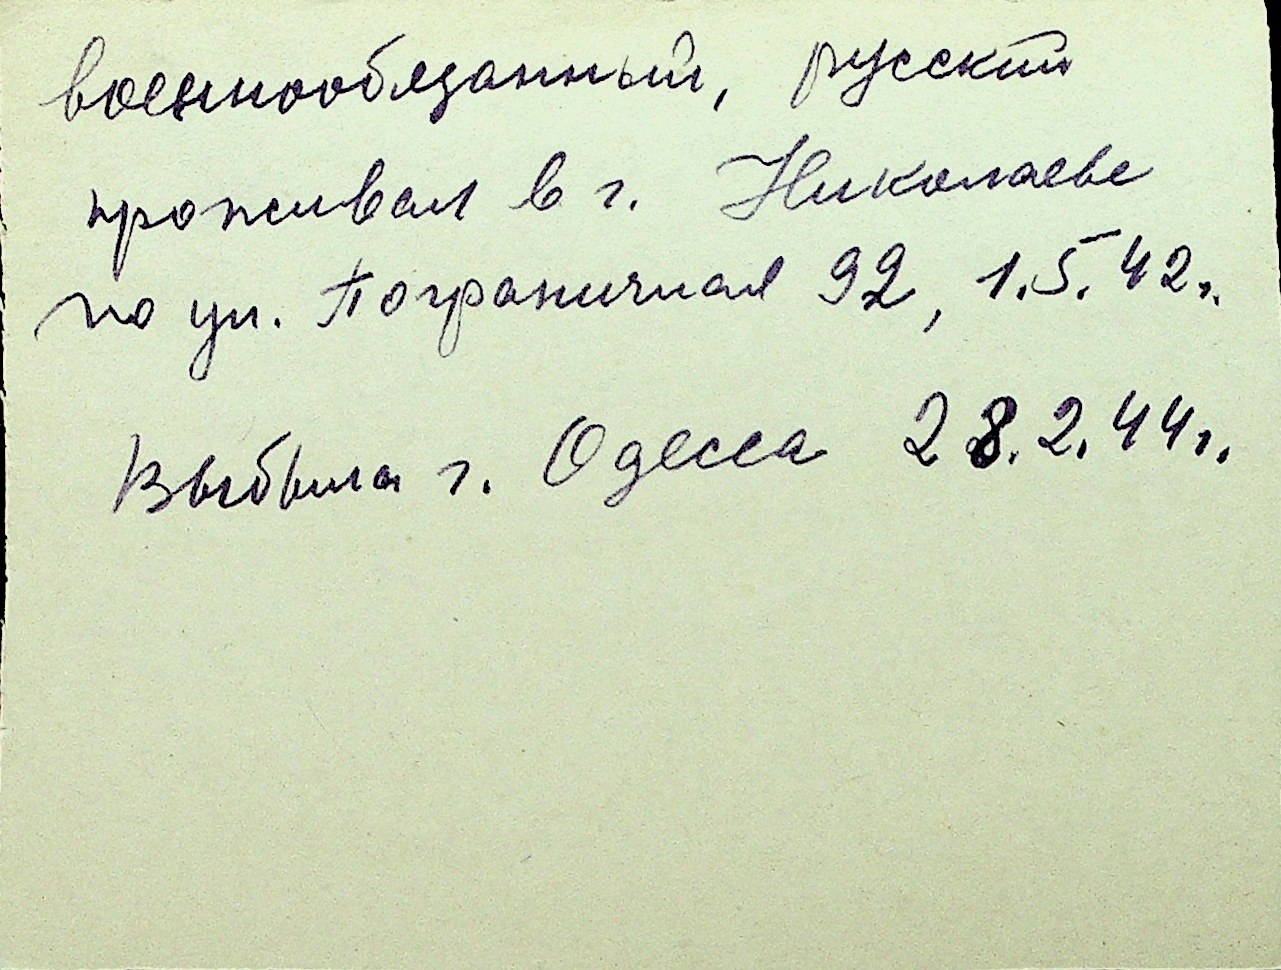 военнообязанный, русский
проживал в г. Николаеве
по ул. Пограничная 92, 1.5.42г.
Выбыла г. Одесса 28.2.44г.